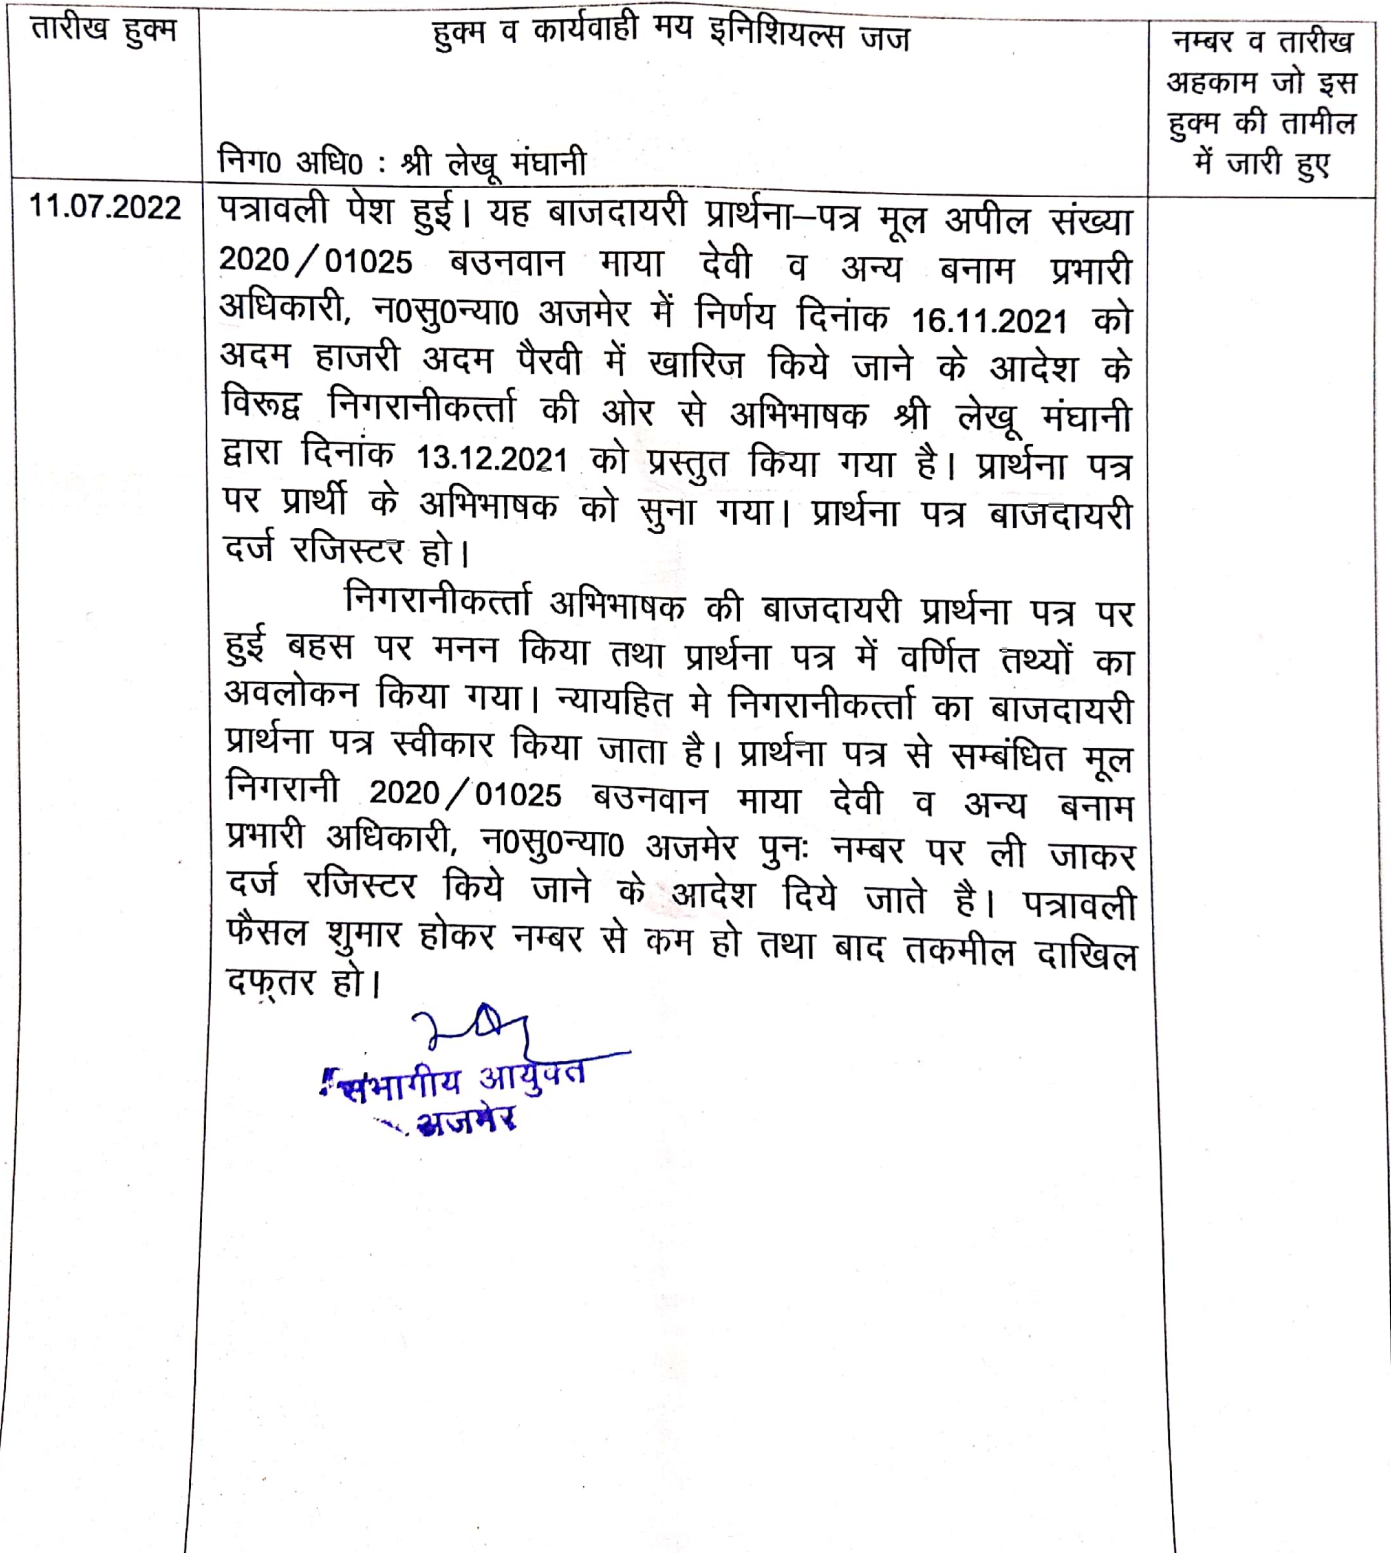 तारीख हुक्म
हुक्म व कार्यवाही मय इनिशियल्स जज
नम्बर व तारीख
अहकाम जो इस
हुक्म की तामील
में जारी हुए
निग0 अधि0 : श्री लेखू मंघानी
11.07.2022
पत्रावली पेश हुई। यह बाजदायरी प्रार्थना–पत्र मूल अपील संख्या
2020/01025 बउनवान माया देवी व अन्य बनाम प्रभारी
अधिकारी, न0सु0न्या0 अजमेर में निर्णय दिनांक 16.11.2021 को
अदम हाजरी अदम पैरवी में खारिज किये जाने के आदेश के
विरूद्व निगरानीकर्त्ता की ओर से अभिभाषक श्री लेखू मंघानी
द्वारा दिनांक 13.12.2021 को प्रस्तुत किया गया है। प्रार्थना पत्र
पर प्रार्थी के अभिभाषक को सुना गया। प्रार्थना पत्र बाजदायरी
दर्ज रजिस्टर हो।
निगरानीकर्त्ता अभिभाषक की बाजदायरी प्रार्थना पत्र पर
हुई बहस पर मनन किया तथा प्रार्थना पत्र में वर्णित तथ्यों का
अवलोकन किया गया। न्यायहित मे निगरानीकर्त्ता का बाजदायरी
प्रार्थना पत्र स्वीकार किया जाता है। प्रार्थना पत्र से सम्बंधित मूल
निगरानी 2020/01025 बउनवान माया देवी व अन्य बनाम
प्रभारी अधिकारी, न0सु0न्या0 अजमेर पुनः नम्बर पर ली जाकर
दर्ज रजिस्टर किये जाने के आदेश दिये जाते है। पत्रावली
फैसल शुमार होकर नम्बर से कम हो तथा बाद तकमील दाखिल
दफ्तर हो।
संभागीय आयुक्त
अजमेर